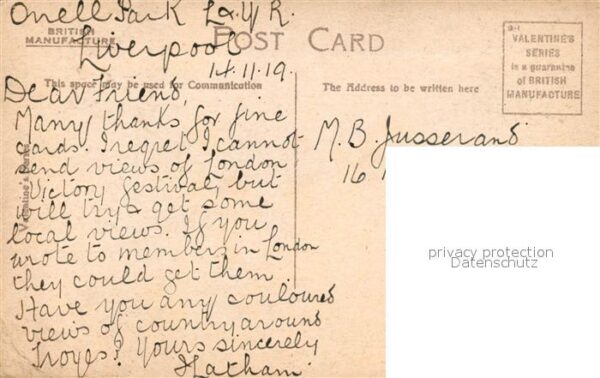 Orrell Park L & Y R.
BRITISH MANUFACTURE
POST CARD
Liverpool
14.11.19.
This space may be used for Communication
The Address to be written here
VALENTINE'S
SERIES
is a guarantee
of BRITISH
MANUFACTURE
Dear Friend,
Many thanks for fine
cards. I regret I cannot
send views of London
Victory festival, but
will try & get some
local views. If you
wrote to members in London
they could get them
Have you any couloured
views of country around
Troyes? Yours sincerely
M. B. Jusserand
16
Valentine's Series
privacy protection
Datenschutz